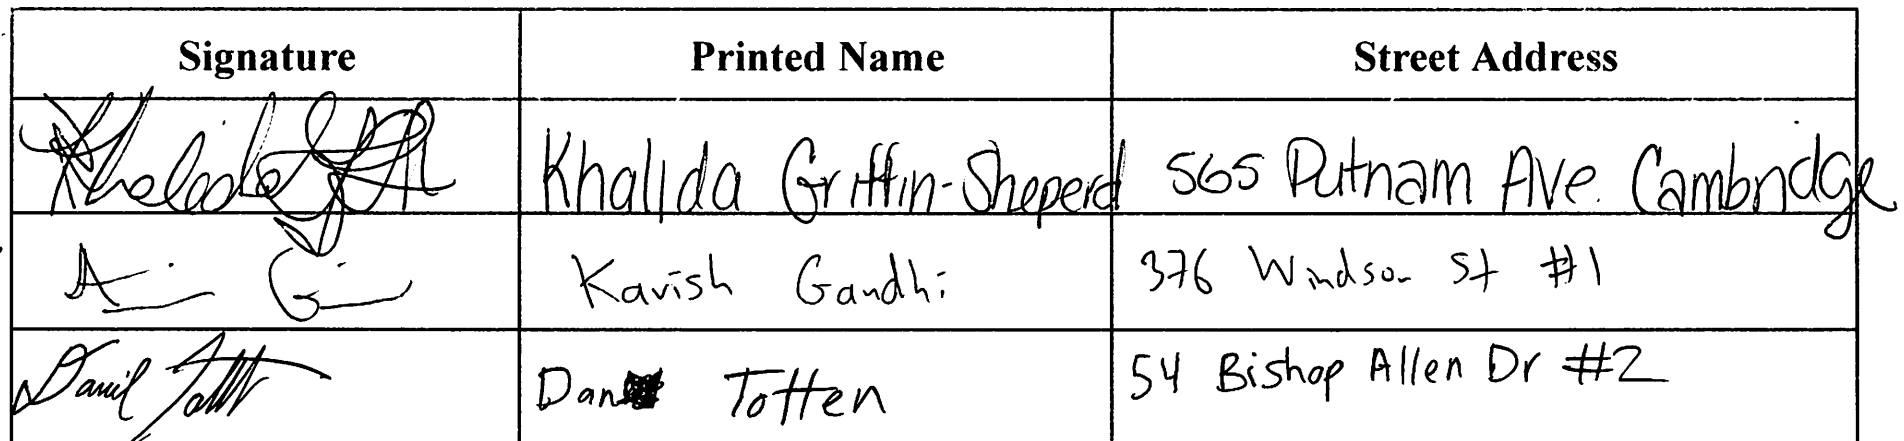 Signature Printed Name Street Address
Khalida Griffin-Sheperd 565 Putnam Ave. Cambridge
Kavish Gandhi 376 Windsor St #1
Daniel Totten Dan Totten 54 Bishop Allen Dr #2